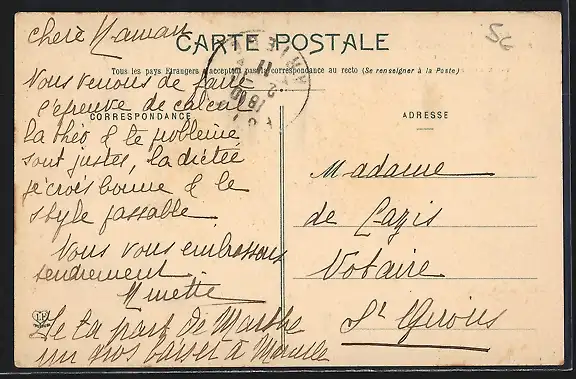 chère Maman
CARTE POSTALE
Tous les pays Etrangers n'acceptent pas la correspondance au recto (Se renseigner à la Poste)
56
Nous venons de faire
l'épreuve de calcul
CORRESPONDANCE
ADRESSE
la théo & le problème
sont justes, la dictée
je crois bonne & le
style passable.
Nous vous embrassons
tendrement
Minette
De la part de Marthe
un gros baiser à
Madame
de Lazis
Notaire
St Girons